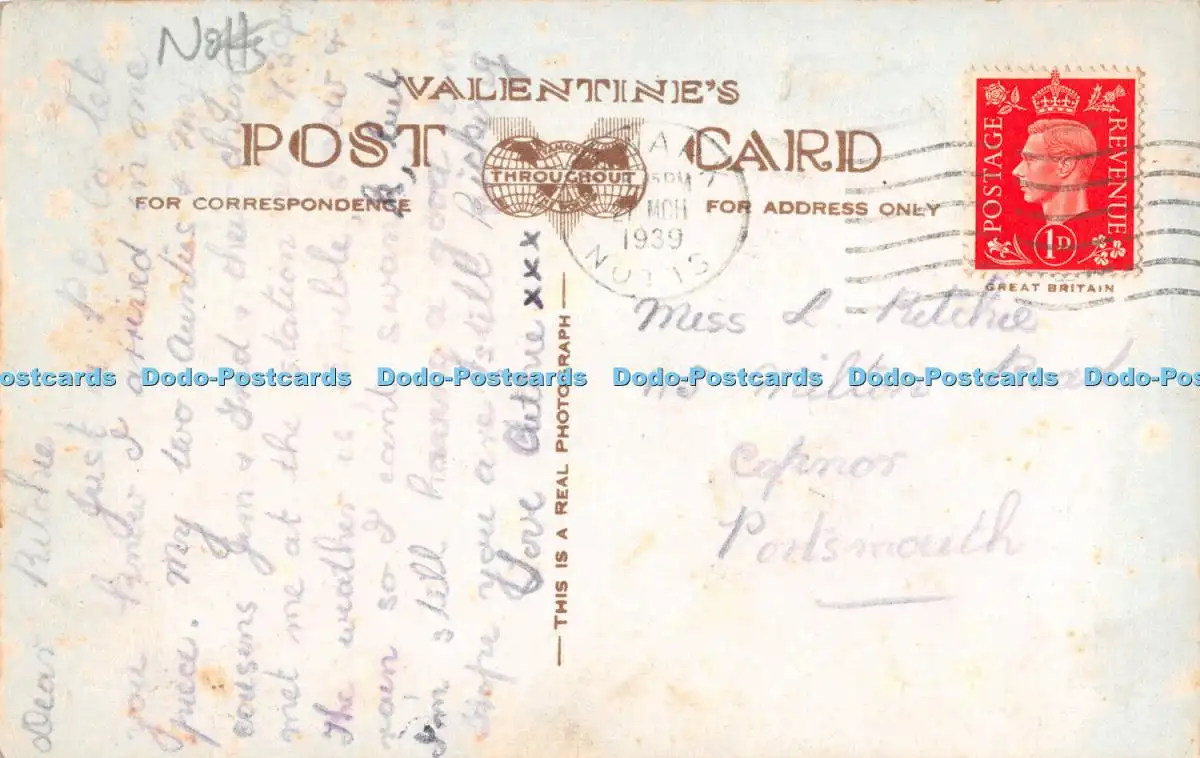 Notts
VALENTINE'S
POST CARD
FAMOUS
THROUGHOUT
THE WORLD
FOR CORRESPONDENCE
FOR ADDRESS ONLY
5PM
MCH
1939
NOTTS
POSTAGE
REVENUE
1D
GREAT BRITAIN
THIS IS A REAL PHOTOGRAPH
Dear Ritchie
Just a P.C. to let
you know I arrived in one
piece. My two aunties & my
cousins Jim & Ted &
met me at the station
The weather is terrible snow &
rain so I can't swank but
I'm still having a good time
Hope you are still
Love Arthur xxx
Miss L Ritchie
Milton Road
Copnor
Portsmouth
Dodo-Postcards Dodo-Postcards Dodo-Postcards Dodo-Postcards Dodo-Postcards Dodo-Postcards